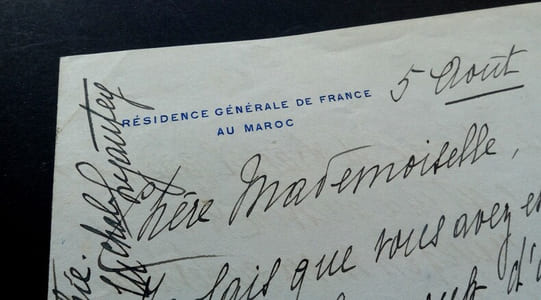 RÉSIDENCE GÉNÉRALE DE FRANCE
AU MAROC
5 Août
Chère Mademoiselle,
sais que vous avez
Lyautey